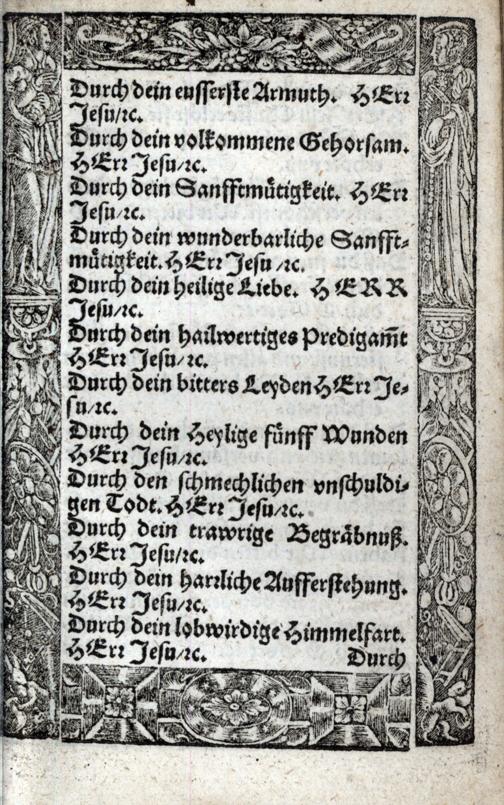 Durch dein eusserste Armuth. HErr
Jesu/ꝛc.
Durch dein volkommene Gehorsam.
HErr Jesu/ꝛc.
Durch dein Sanfftmütigkeit. HErr
Jesu/ꝛc.
Durch dein wunderbarliche Sanfft⸗
mütigkeit. HErr Jesu /ꝛc.
Durch dein heilige Liebe. HERR
Jesu/ꝛc.
Durch dein hailwertiges Predigam̃t
HErr Jesu/ꝛc.
Durch dein bitters Leyden HErr Je⸗
su/ꝛc.
Durch dein Heylige fünff Wunden
HErr Jesu/ꝛc.
Durch den schmechlichen vnschuldi⸗
gen Todt. HErr Jesu/ꝛc.
Durch dein trawrige Begräbnuß.
HErr Jesu/ꝛc.
Durch dein harrliche Aufferstehung.
HErr Jesu/ꝛc.
Durch dein lobwirdige Himmelfart.
HErr Jesu/ꝛc.
Durch